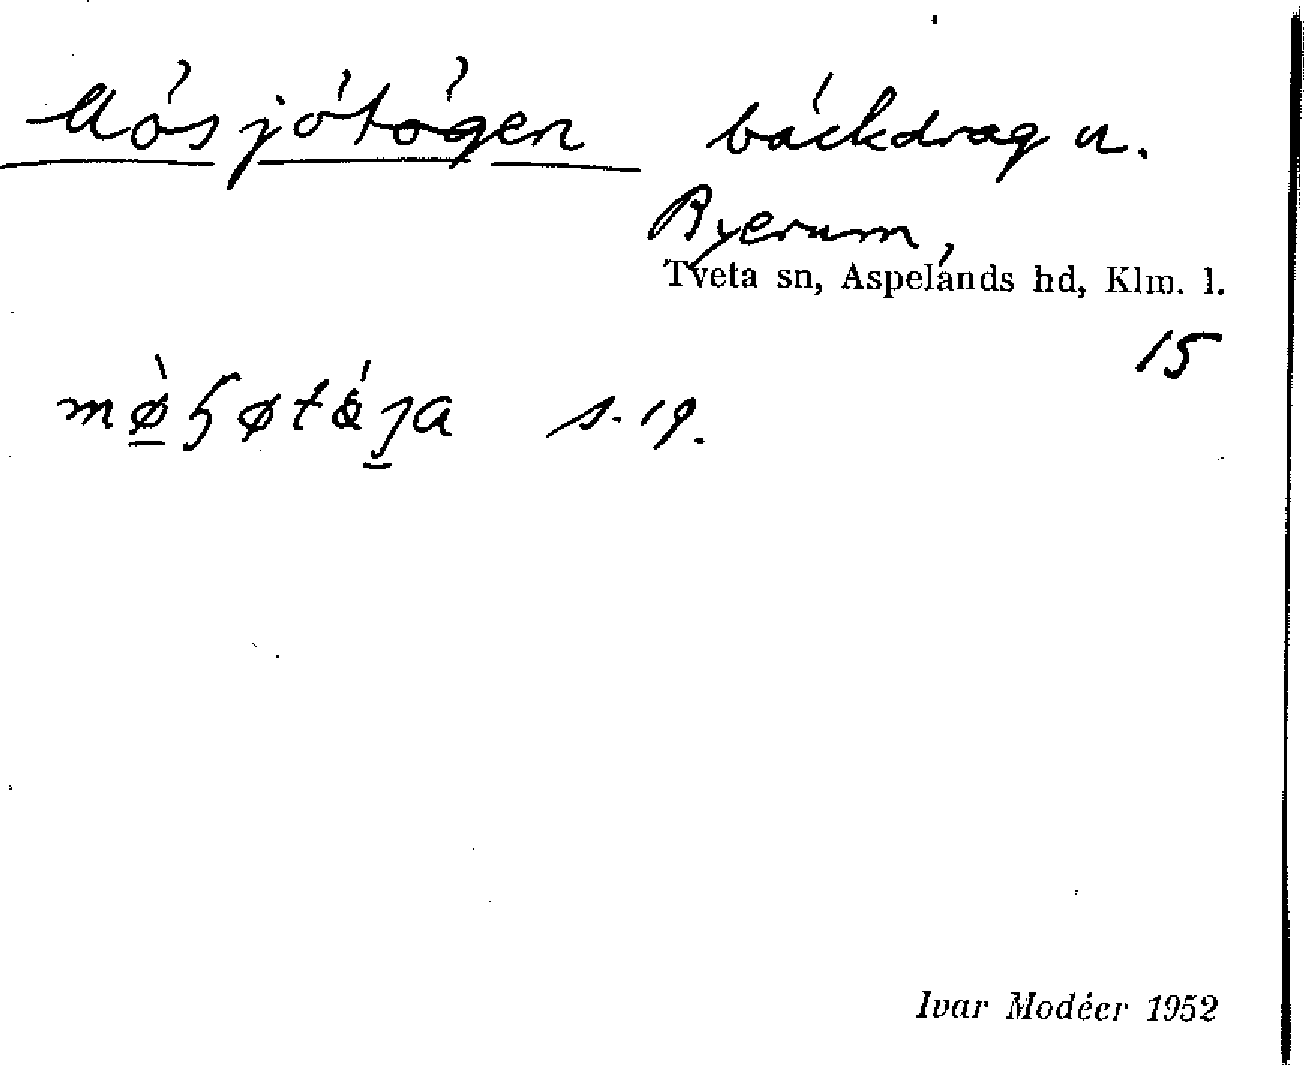 Mösjötågen bäckdrag u.
Ryerum,
Tveta sn, Aspelands hd, Klm. l.
15
s. 19.
Ivar Modéer 1952